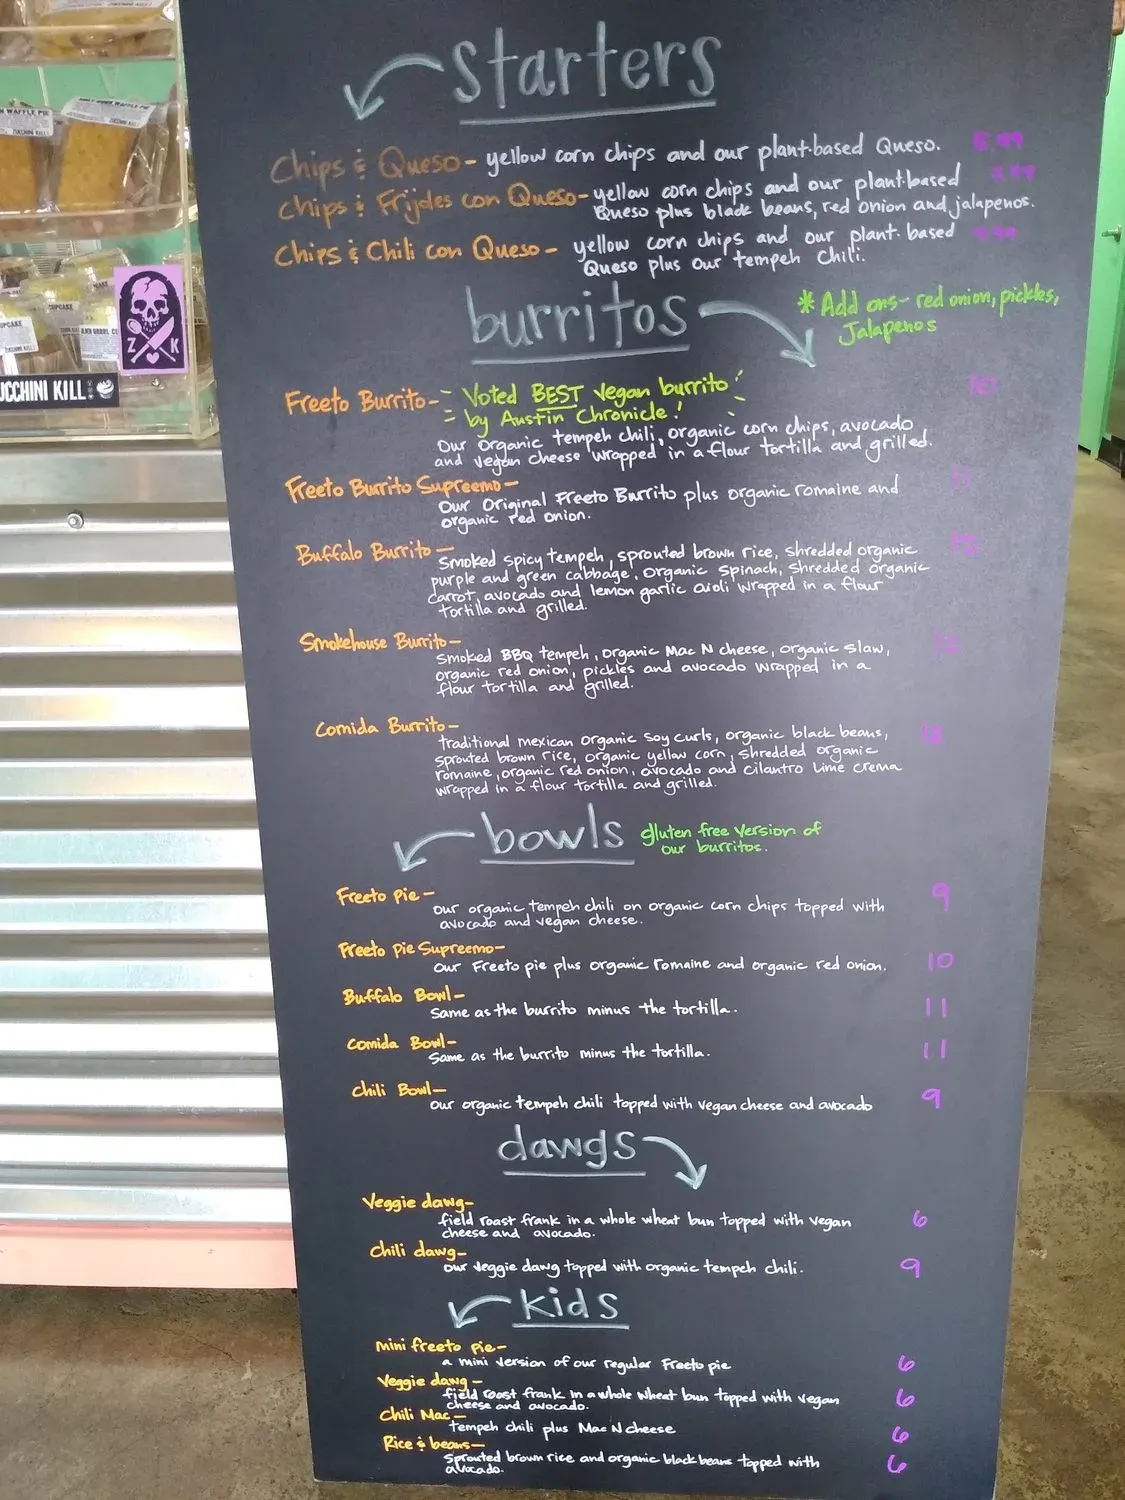 Starters
Chips & Queso - yellow corn chips and our plant-based Queso. 5.99
Chips & Frijoles con Queso - yellow corn chips and our plant-based
Queso plus black beans, red onion and jalapenos.
Chips & Chili con Queso - yellow corn chips and our plant-based
Queso plus our tempeh chili.
burritos
* Add ons - red onion, pickles,
Jalapenos
Freeto Burrito - Voted BEST vegan burrito
by Austin Chronicle! 10
Our organic tempeh chili, organic corn chips, avocado
and vegan cheese wrapped in a flour tortilla and grilled.
Freeto Burrito Supreemo - 11
Our Original Freeto Burrito plus organic romaine and
organic red onion.
Buffalo Burrito - 12
Smoked spicy tempeh, sprouted brown rice, shredded organic
purple and green cabbage, organic spinach, shredded organic
carrot, avocado and lemon garlic aioli wrapped in a flour
tortilla and grilled.
Smokehouse Burrito - 12
Smoked BBQ tempeh, organic Mac N cheese, organic slaw,
organic red onion, pickles and avocado wrapped in a
flour tortilla and grilled.
Comida Burrito - 12
traditional mexican organic soy curls, organic black beans,
sprouted brown rice, organic yellow corn, shredded organic
romaine, organic red onion, avocado and cilantro lime crema
wrapped in a flour tortilla and grilled.
bowls
gluten free version of
our burritos.
Freeto pie - 9
our organic tempeh chili on organic corn chips topped with
avocado and vegan cheese.
Freeto pie Supreemo -
our Freeto pie plus organic romaine and organic red onion. 10
Buffalo Bowl -
same as the burrito minus the tortilla. 11
Comida Bowl -
Same as the burrito minus the tortilla. 11
Chili Bowl -
our organic tempeh chili topped with vegan cheese and avocado 9
dawgs
Veggie dawg -
field roast frank in a whole wheat bun topped with vegan 6
cheese and avocado.
Chili dawg -
our veggie dawg topped with organic tempeh chili. 9
kids
mini freeto pie -
a mini version of our regular Freeto pie 6
Veggie dawg -
field roast frank in a whole wheat bun topped with vegan 6
cheese and avocado.
Chili Mac -
tempeh chili plus Mac N cheese 6
Rice & beans -
Sprouted brown rice and organic black beans topped with 6
avocado.
WAFFLE PIE
WAFFLE PIE
ZUCCHINI KILL
CUPCAKE
Z K
UCCHINI KILL